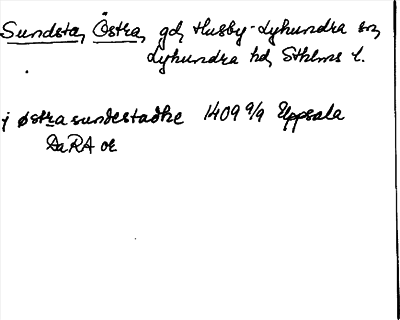 Sundsta, Östra, gd, Husby-Lyhundra sn,
Lyhundra hd, Sthlms l.
j østra sundestadhe 1409 9/9 Uppsala
DaRA or